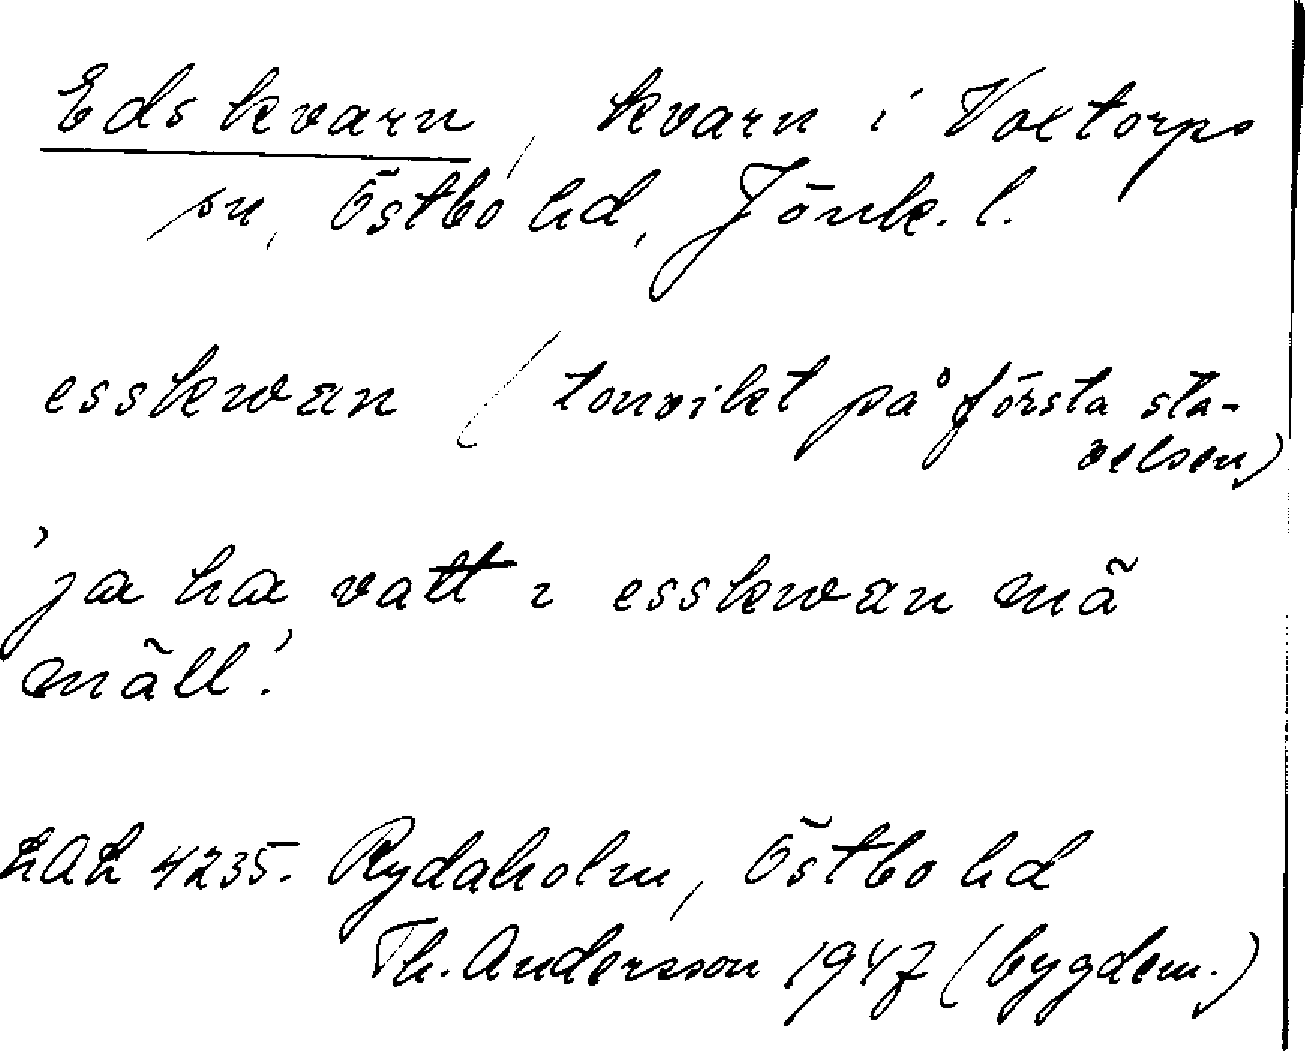 Eds kvarn, kvarn i Voxtorps
sn, Östbo hd, Jönk. l.
esskwæn (tonvikt på första sta-
velsen)
'ja ha vatt ı esskwæn mä
mäll.'
LAL 4235. Rydaholm, Östbo hd
Th. Andersson 1947 (bygdem.)